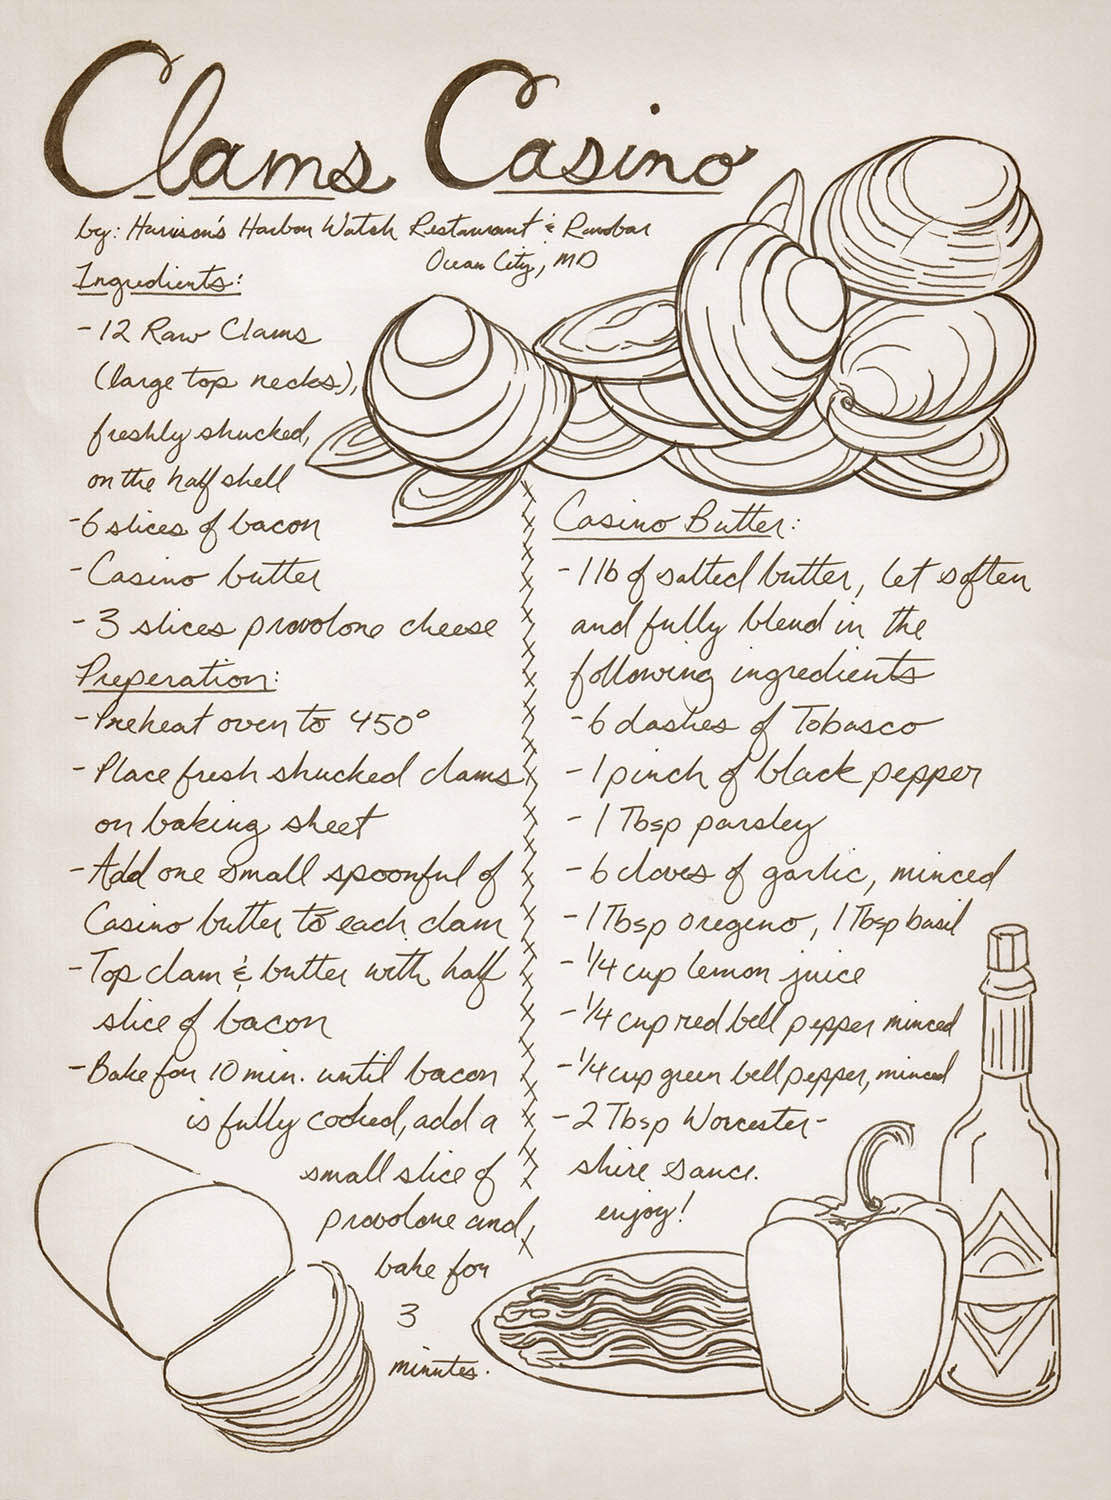 Clams Casino
by: Harrison's Harbor Watch Restaurant & Rawbar
Ocean City, MD
Ingredients:
- 12 Raw Clams
(large top necks),
freshly shucked,
on the half shell
- 6 slices of bacon
- Casino butter
- 3 slices provolone cheese
Preperation:
- Preheat oven to 450°
- Place fresh shucked clams
on baking sheet
- Add one small spoonful of
Casino butter to each clam
- Top clam & butter with half
slice of bacon
- Bake for 10 min. until bacon
is fully cooked, add a
small slice of
provolone and,
bake for
3
minutes.
Casino Butter:
- 1 lb of salted butter, let soften
and fully blend in the
following ingredients
- 6 dashes of Tobasco
- 1 pinch of black pepper
- 1 Tbsp parsley
- 6 cloves of garlic, minced
- 1 Tbsp oregeno, 1 Tbsp basil
- 1/4 cup lemon juice
- 1/4 cup red bell pepper minced
- 1/4 cup green bell pepper, minced
- 2 Tbsp Worcester-
shire sauce.
enjoy!